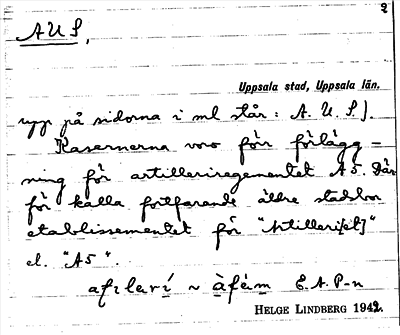 2
AUS,
Uppsala stad, Uppsala län.
upp på sidorna i ml står: A. U. S.).
Kasernerna voro förr förlägg=
ning för artilleriregementet A5. Där-
för kalla fortfarande äldre stadsbor
etablissementet för "Artilleri[et]"
el. "A5".
E. A. P-n
HELGE LINDBERG 1942.